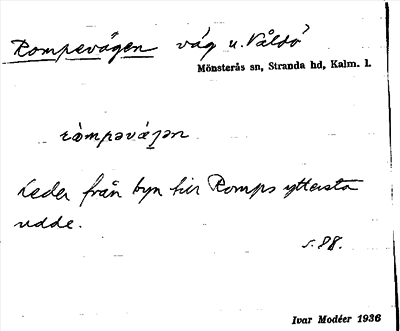 Rompevägen väg u. Vållö
Mönsterås sn, Stranda hd, Kalm. l.
ròmpəvá̱gən
Leder från byn till Romps yttersta
udde.
s. 88.
Ivar Modéer 1936